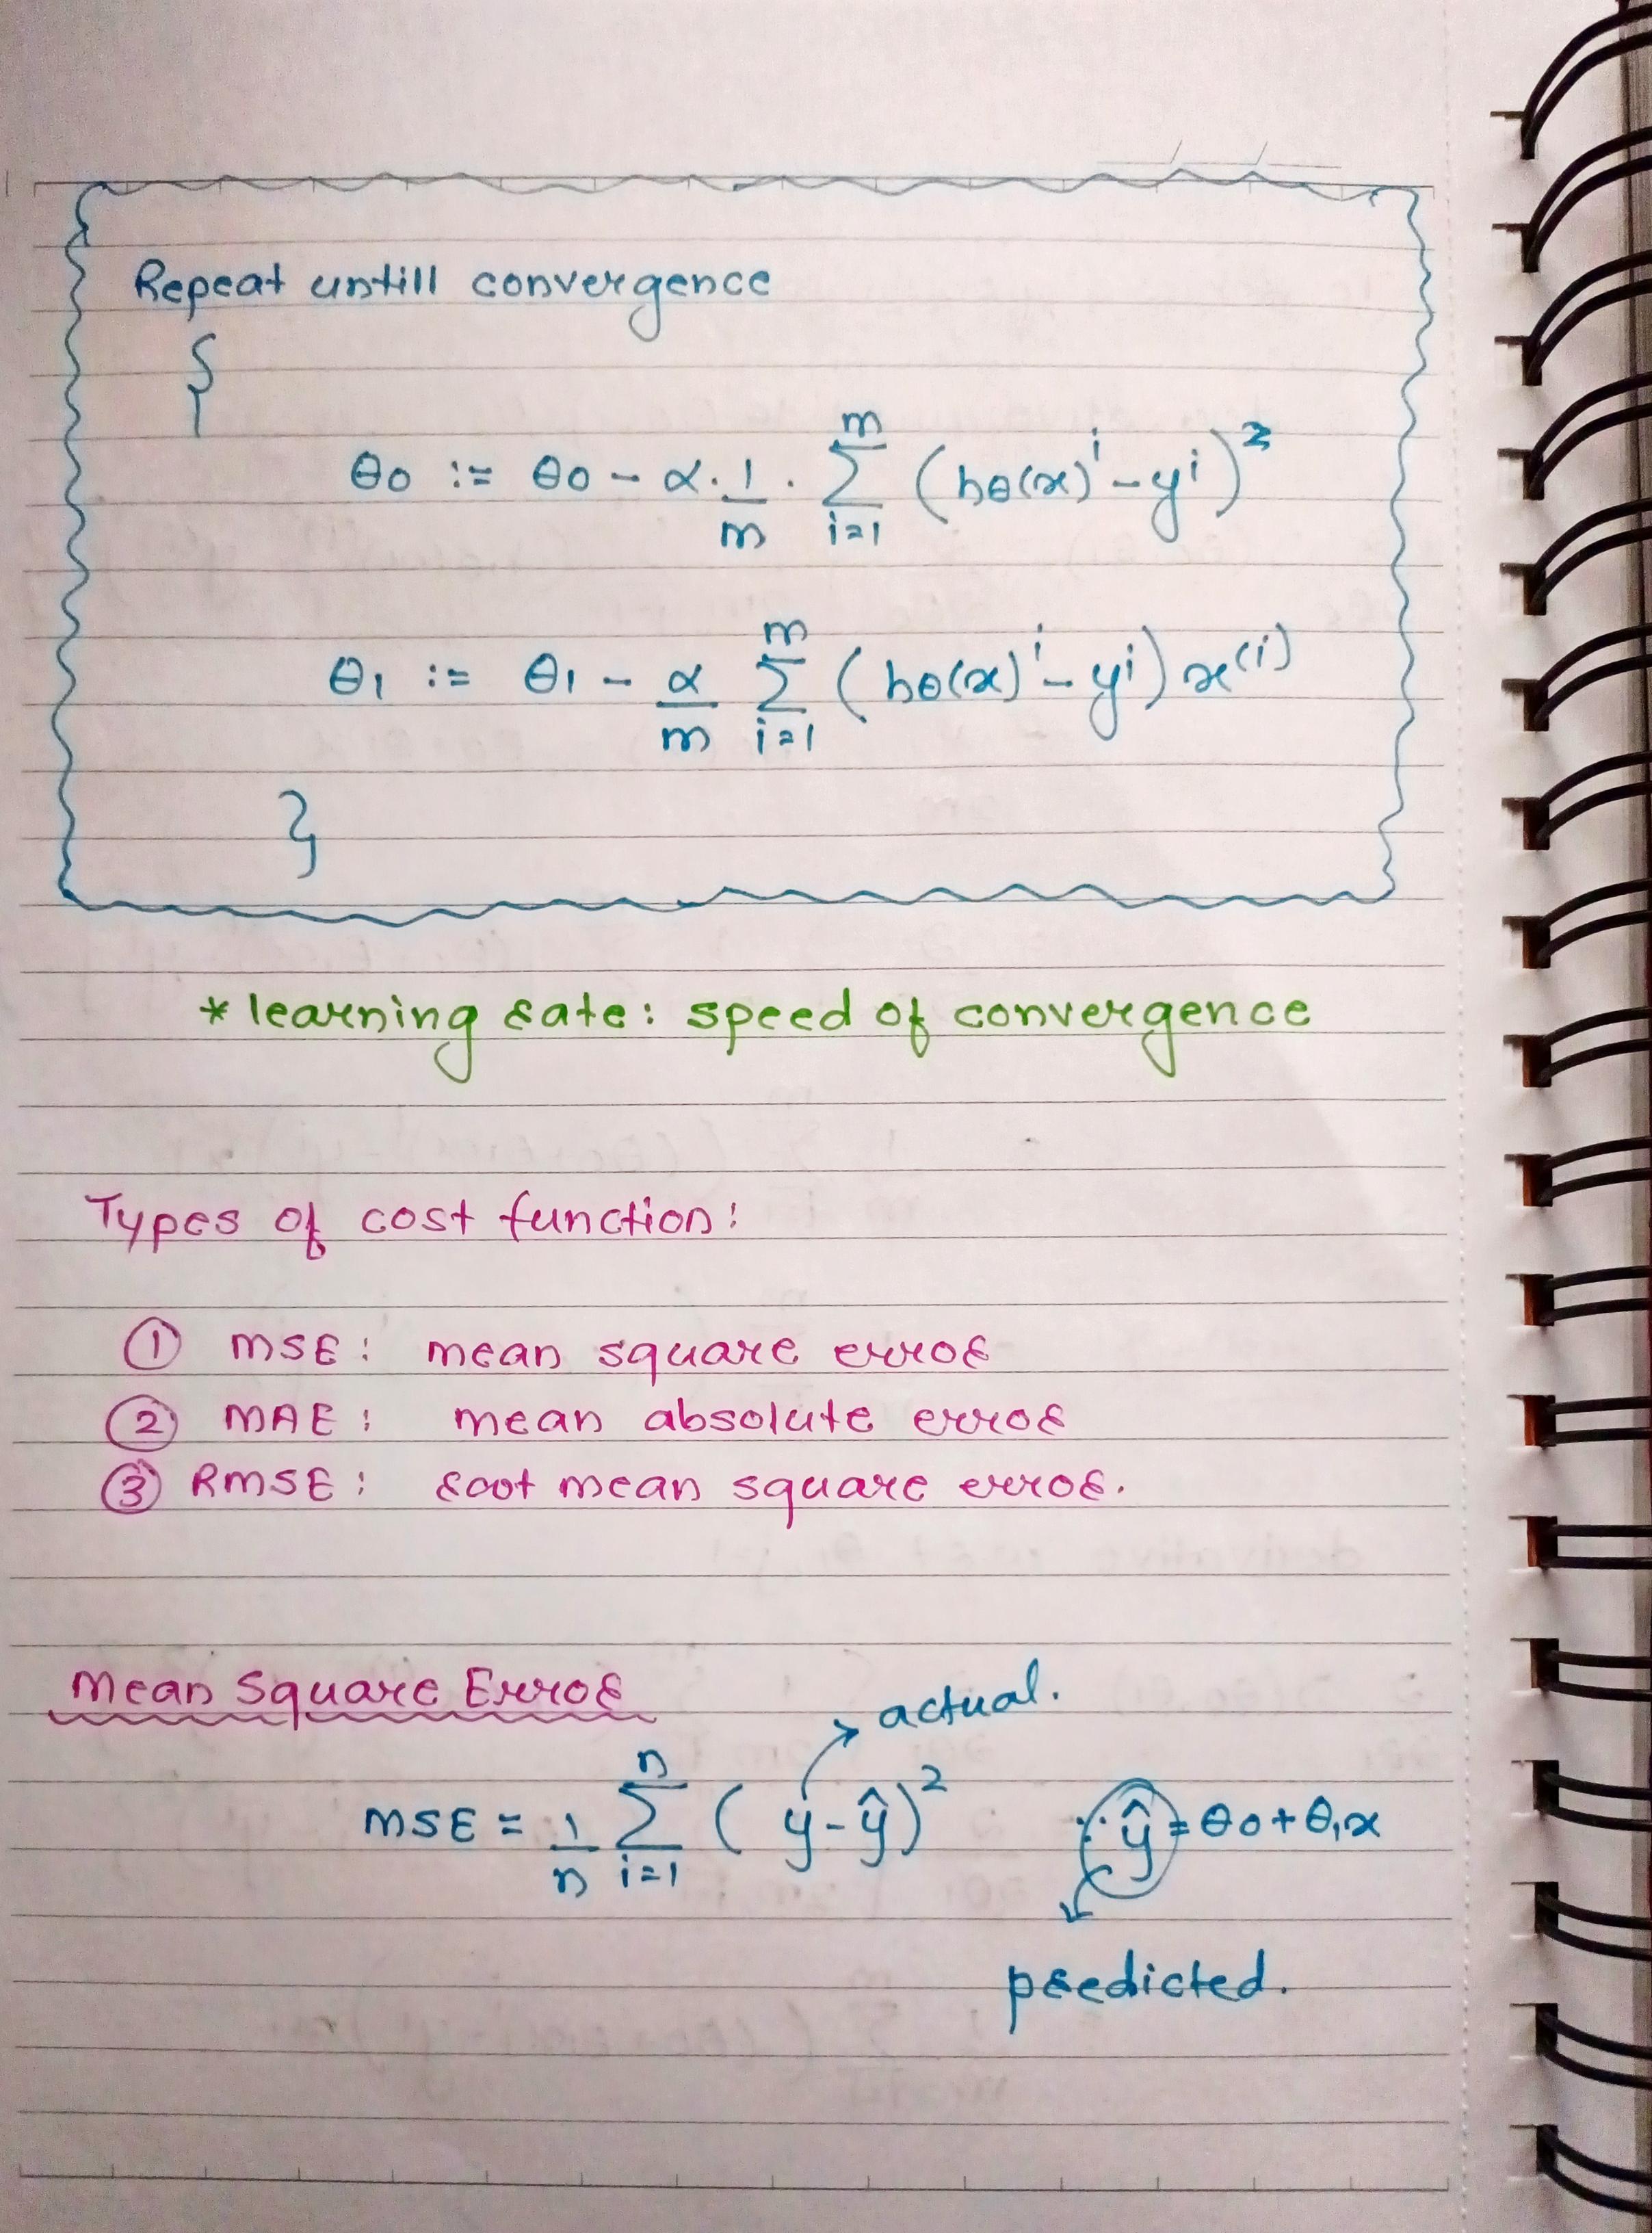 Repeat untill convergence
{
θ0 := θ0 - α . 1/m . Σ_{i=1}^{m} (hθ(x)^i - y^i)^2
θ1 := θ1 - α/m Σ_{i=1}^{m} (hθ(x)^i - y^i) x^(i)
}
* learning rate: speed of convergence
Types of cost function:
① MSE: mean square error
② MAE: mean absolute error
③ RMSE: root mean square error.
Mean Square Error
actual.
MSE = 1/n Σ_{i=1}^{n} (y - ŷ)^2 ∵ ŷ = θ0 + θ1x
predicted.